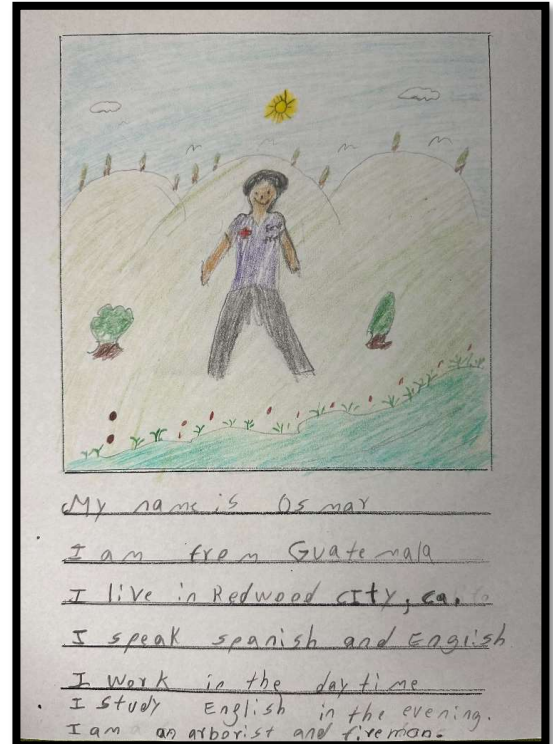 My name is Osmar
I am from Guatemala
I live in Redwood cIty, ca.
I speak spanish and English
I work in the day time
I study English in the evening.
I am an arborist and fireman.